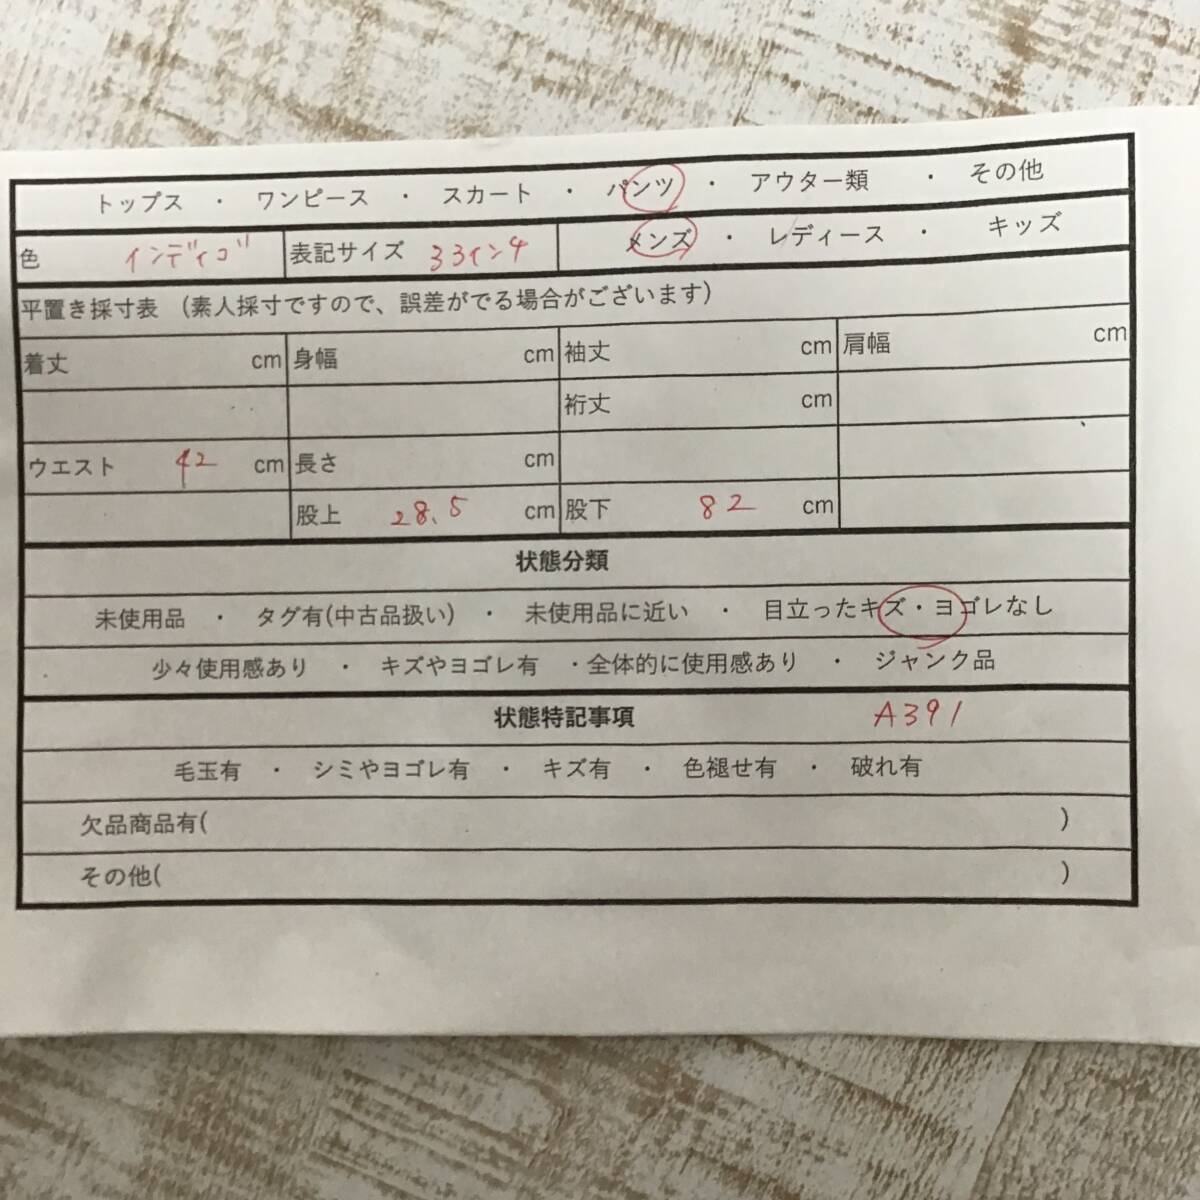 トップス ・ ワンピース ・ スカート ・ パンツ ・ アウター類 ・ その他
色 インディゴ 表記サイズ 33インチ メンズ ・ レディース ・ キッズ
平置き採寸表 (素人採寸ですので、誤差がでる場合がございます)
着丈 cm 身幅 cm 袖丈 cm 肩幅 cm
裄丈 cm
ウエスト 42 cm 長さ cm
股上 28.5 cm 股下 82 cm
状態分類
未使用品 ・ タグ有(中古品扱い) ・ 未使用品に近い ・ 目立ったキズ・ヨゴレなし
少々使用感あり ・ キズやヨゴレ有 ・全体的に使用感あり ・ ジャンク品
状態特記事項 A391
毛玉有 ・ シミやヨゴレ有 ・ キズ有 ・ 色褪せ有 ・ 破れ有
欠品商品有( )
その他( )